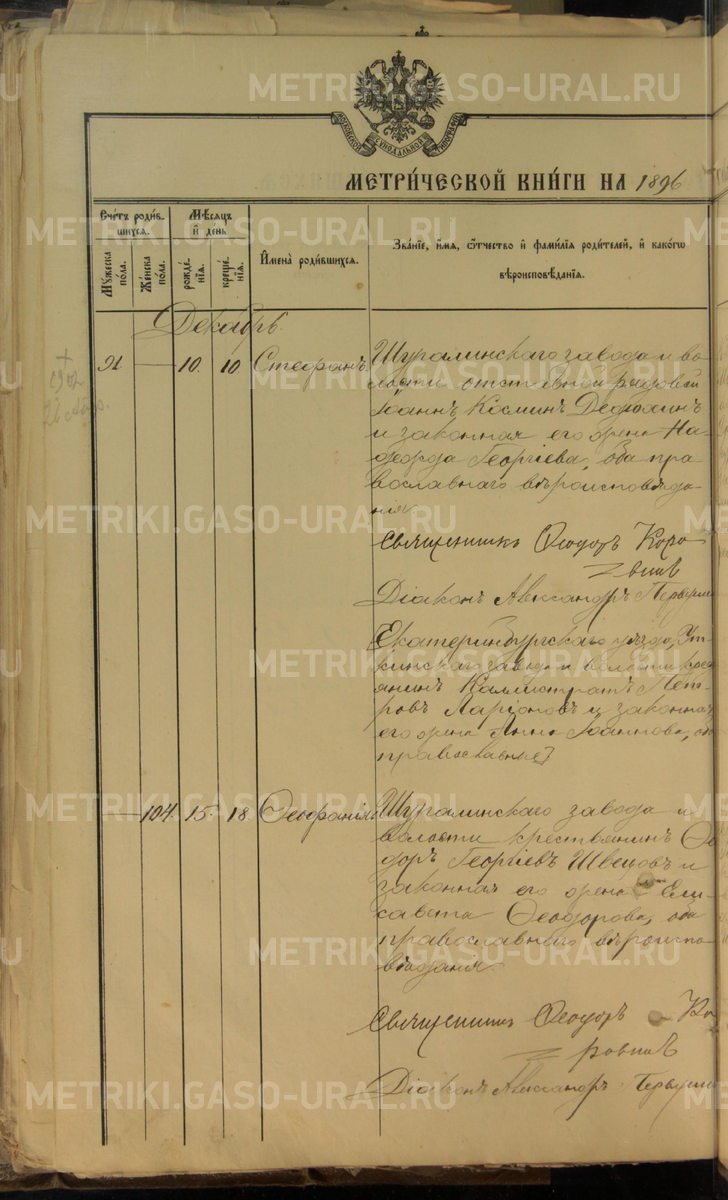 МОСКОВСКОЙ СѴНОДАЛЬНОЙ ТИПОГРАФІИ
МЕТРИ́ЧЕСКОЙ КНИ́ГИ НА 1896
Сче́тъ роди́в-
шихся.
Мꙋ́жеска по́ла.
Же́нска по́ла.
Мѣ́сяцъ и де́нь
рожде́нїя.
креще́нїя.
И҆мена̀ роди́вшихся.
Зва́нїе, и҆́мя, ѻ҆́тчество и҆ фами́лїя роди́телей, и҆ како́гѡ
вѣроисповѣ́данїя.
Декабрь.
91 — 10. 10 Стефанъ
Шуралинскаго завода и во-
лости отставной рядовой
Іоаннъ Космин Дедюхинъ
и законная его жена На-
дежда Георгіева, оба пра-
вославнаго вѣроисповѣда-
нія
Священникъ Ѳеодоръ Коро-
внинъ
Діаконъ Александръ
Екатеринбургскаго уѣзда, Ут-
кинскаго завода и волости крес
янинъ Каллистратъ Пет-
ровъ Ларіоновъ и законная
его жена Анна Іоаннова, об
православные]
— 104. 15. 18. Ѳеофанія
Шуралинскаго завода и
волости крестьянинъ Ѳе
доръ Георгіевъ Швецовъ и
законная его жена Ели-
савета Ѳеодорова, оба
православнаго вѣроиспо-
вѣданія.
Священникъ Ѳеодоръ Ко
ровнинъ
Діаконъ Александръ
METRIKI.GASO-URAL.RU